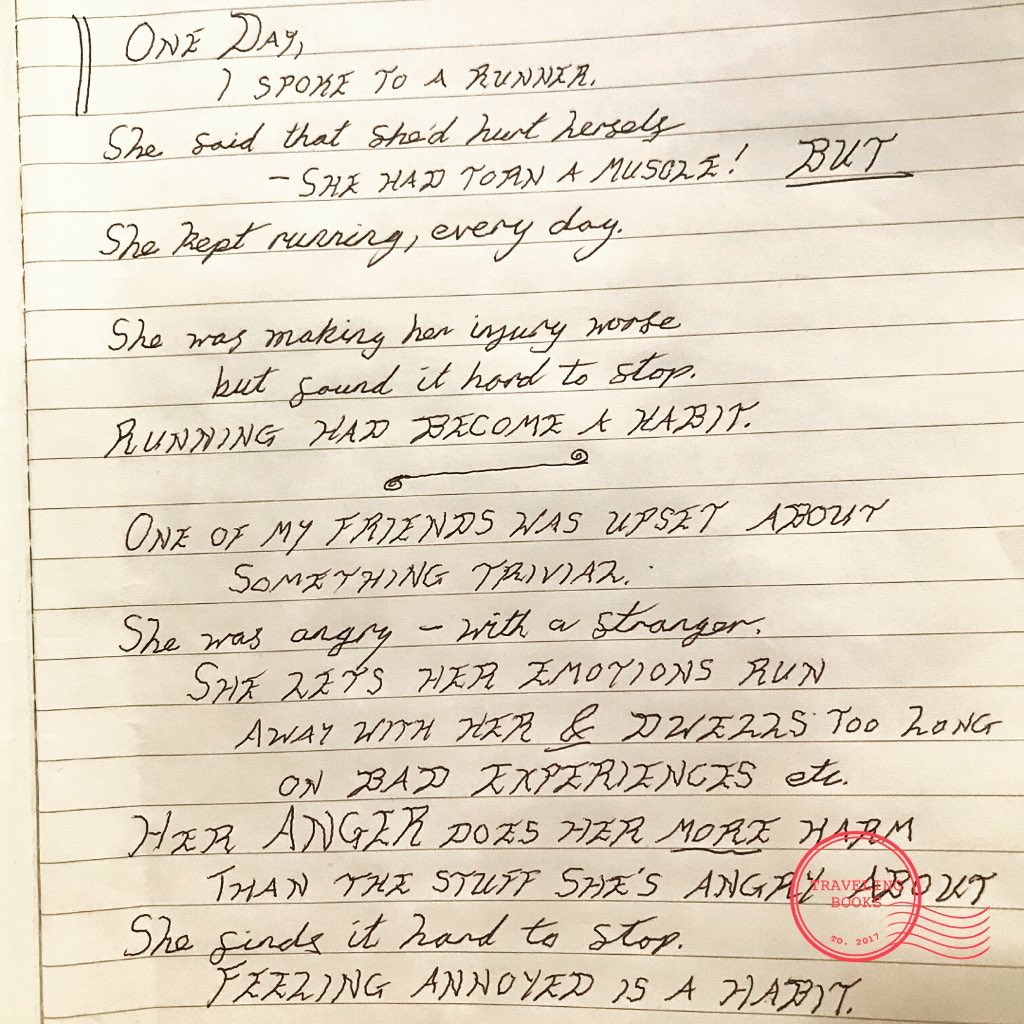 ONE DAY,
I SPOKE TO A RUNNER.
She said that she'd hurt herself
- SHE HAD TORN A MUSCLE! BUT
She kept running, every day.
She was making her injury worse
but found it hard to stop.
RUNNING HAD BECOME A HABIT.
ONE OF MY FRIENDS WAS UPSET ABOUT
SOMETHING TRIVIAL.
She was angry - with a stranger.
SHE LETS HER EMOTIONS RUN
AWAY WITH HER & DWELLS TOO LONG
ON BAD EXPERIENCES etc.
HER ANGER DOES HER MORE HARM
THAN THE STUFF SHE'S ANGRY ABOUT
She finds it hard to stop.
FEELING ANNOYED IS A HABIT.
TRAVELING
BOOKS
TO. 2017